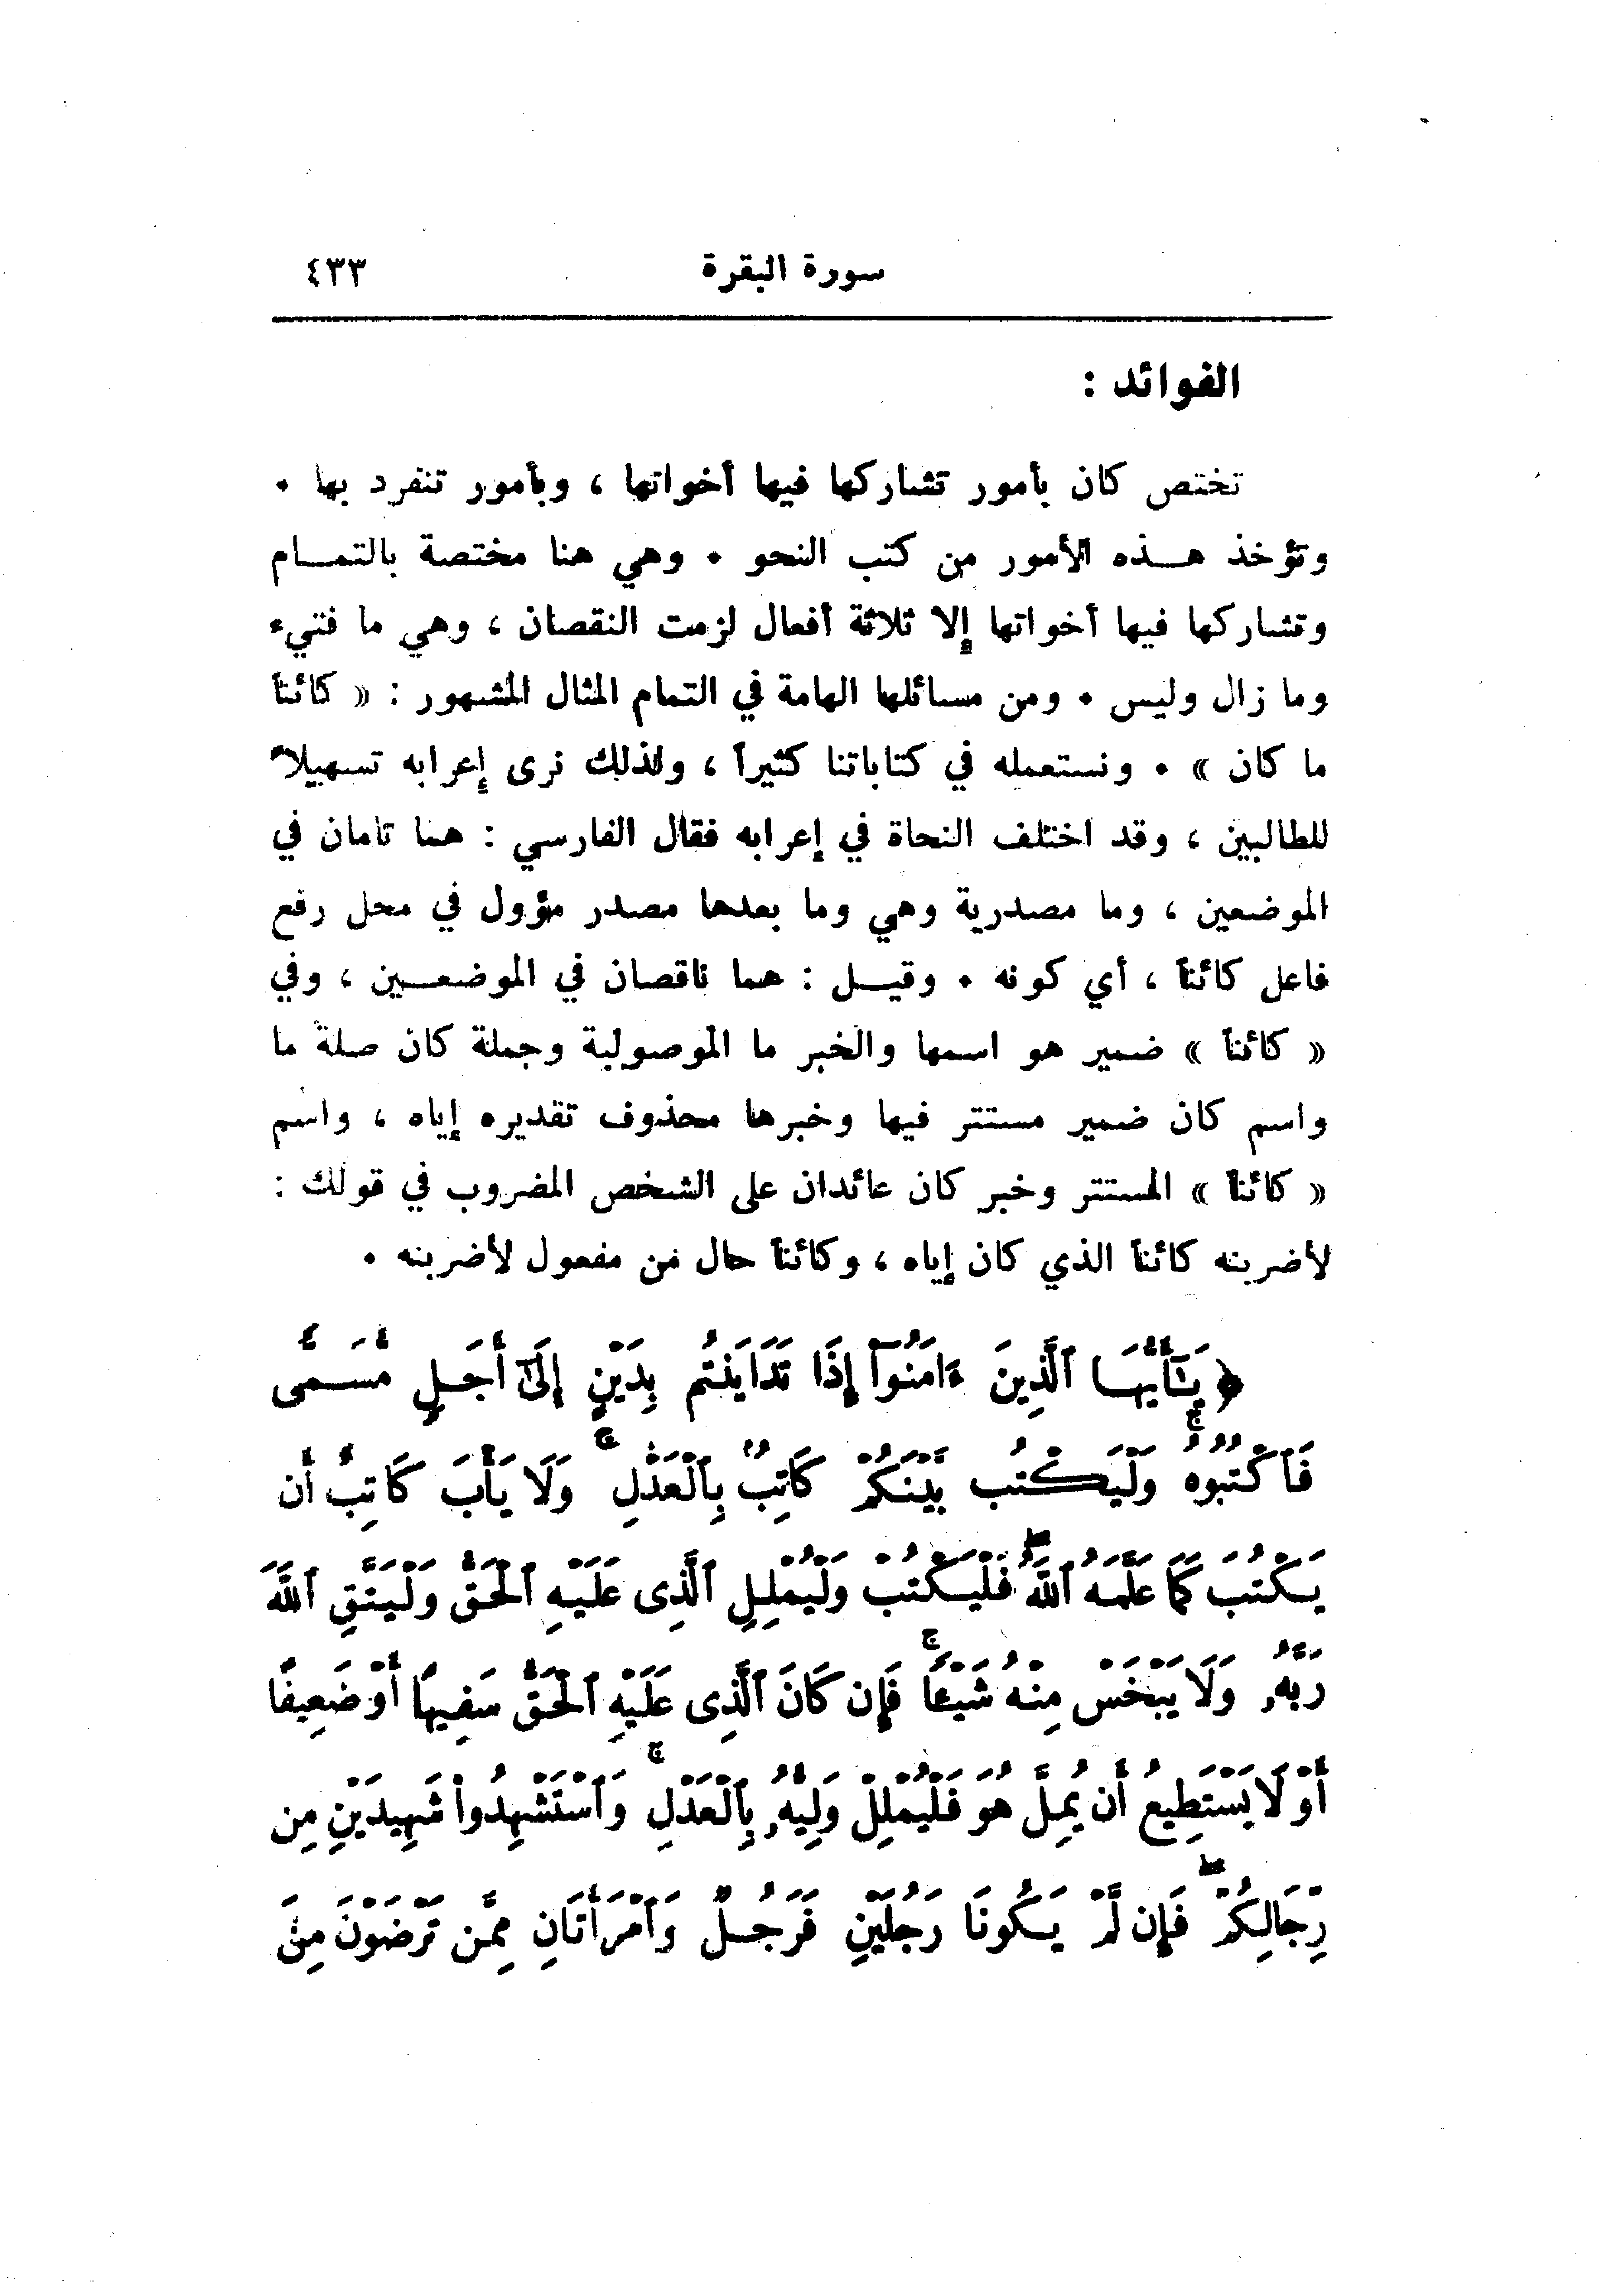 سورة البقرة ٤٣٣
الفوائد :
تختص كان بأمور تشاركها فيها أخواتها ، وبأمور تنفرد بها ٠
وتؤخذ هـــذه الأمور من كتب النحو ٠ وهي هنا مختصة بالتمـــام
وتشاركها فيها أخواتها إلا ثلاثة أفعال لزمت النقصان ، وهي ما فتىء
وما زال وليس ٠ ومن مسائلها الهامة في التمام المثال المشهور : « كائناً
ما كان » ٠ ونستعمله في كتاباتنا كثيراً ، ولذلك نرى إعرابه تسهيلاً
للطالبين ، وقد اختلف النحاة في إعرابه فقال الفارسي : هما تامان في
الموضعين ، وما مصدرية وهي وما بعدها مصدر مؤول في محل رفع
فاعل كائناً ، أي كونه ٠ وقيـــل : هما ناقصان في الموضعـــين ، وفي
« كائناً » ضمير هو اسمها والخبر ما الموصولية وجملة كان صلة ما
واسم كان ضمير مستتر فيها وخبرها محذوف تقديره إياه ، واسم
« كائناً » المستتر وخبر كان عائدان على الشخص المضروب في قولك :
لأضربنه كائناً الذي كان إياه ، وكائناً حال من مفعول لأضربنه ٠
﴿ يَـٰٓأَيُّهَا ٱلَّذِينَ ءَامَنُوٓا۟ إِذَا تَدَايَنتُم بِدَيْنٍ إِلَىٰٓ أَجَلٍ مُّسَمًّى
فَٱكْتُبُوهُ ۚ وَلْيَكْتُب بَّيْنَكُمْ كَاتِبٌۢ بِٱلْعَدْلِ ۚ وَلَا يَأْبَ كَاتِبٌ أَن
يَكْتُبَ كَمَا عَلَّمَهُ ٱللَّهُ ۚ فَلْيَكْتُبْ وَلْيُمْلِلِ ٱلَّذِى عَلَيْهِ ٱلْحَقُّ وَلْيَتَّقِ ٱللَّهَ
رَبَّهُۥ وَلَا يَبْخَسْ مِنْهُ شَيْـًٔا ۚ فَإِن كَانَ ٱلَّذِى عَلَيْهِ ٱلْحَقُّ سَفِيهًا أَوْ ضَعِيفًا
أَوْ لَا يَسْتَطِيعُ أَن يُمِلَّ هُوَ فَلْيُمْلِلْ وَلِيُّهُۥ بِٱلْعَدْلِ ۚ وَٱسْتَشْهِدُوا۟ شَهِيدَيْنِ مِن
رِّجَالِكُمْ ۖ فَإِن لَّمْ يَكُونَا رَجُلَيْنِ فَرَجُلٌ وَٱمْرَأَتَانِ مِمَّن تَرْضَوْنَ مِنَ